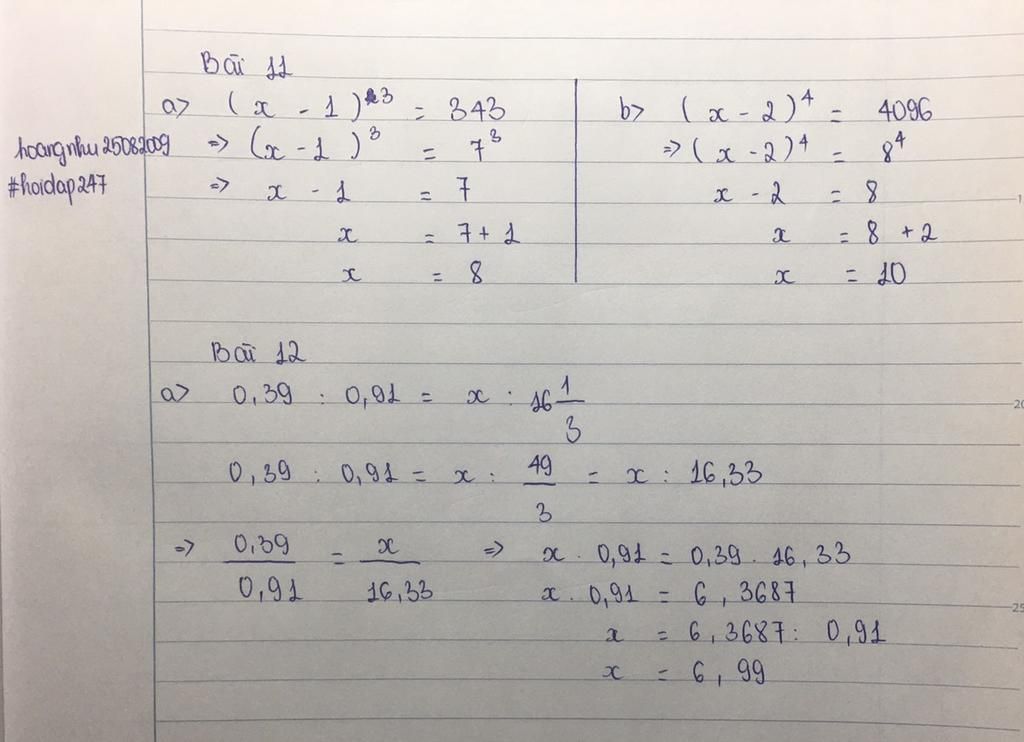 Bài 11
a> (x - 1)³ = 343
=> (x - 1)³ = 7³
=> x - 1 = 7
x = 7 + 1
x = 8
b> (x - 2)⁴ = 4096
=> (x - 2)⁴ = 8⁴
x - 2 = 8
x = 8 + 2
x = 10
hoangnhu25082009
#hoidap247
Bài 12
a> 0,39 : 0,91 = x : 16 1/3
0,39 : 0,91 = x : 49/3 = x : 16,33
=> 0,39/0,91 = x/16,33
=> x . 0,91 = 0,39 . 16,33
x . 0,91 = 6,3687
x = 6,3687 : 0,91
x = 6,99
20
25